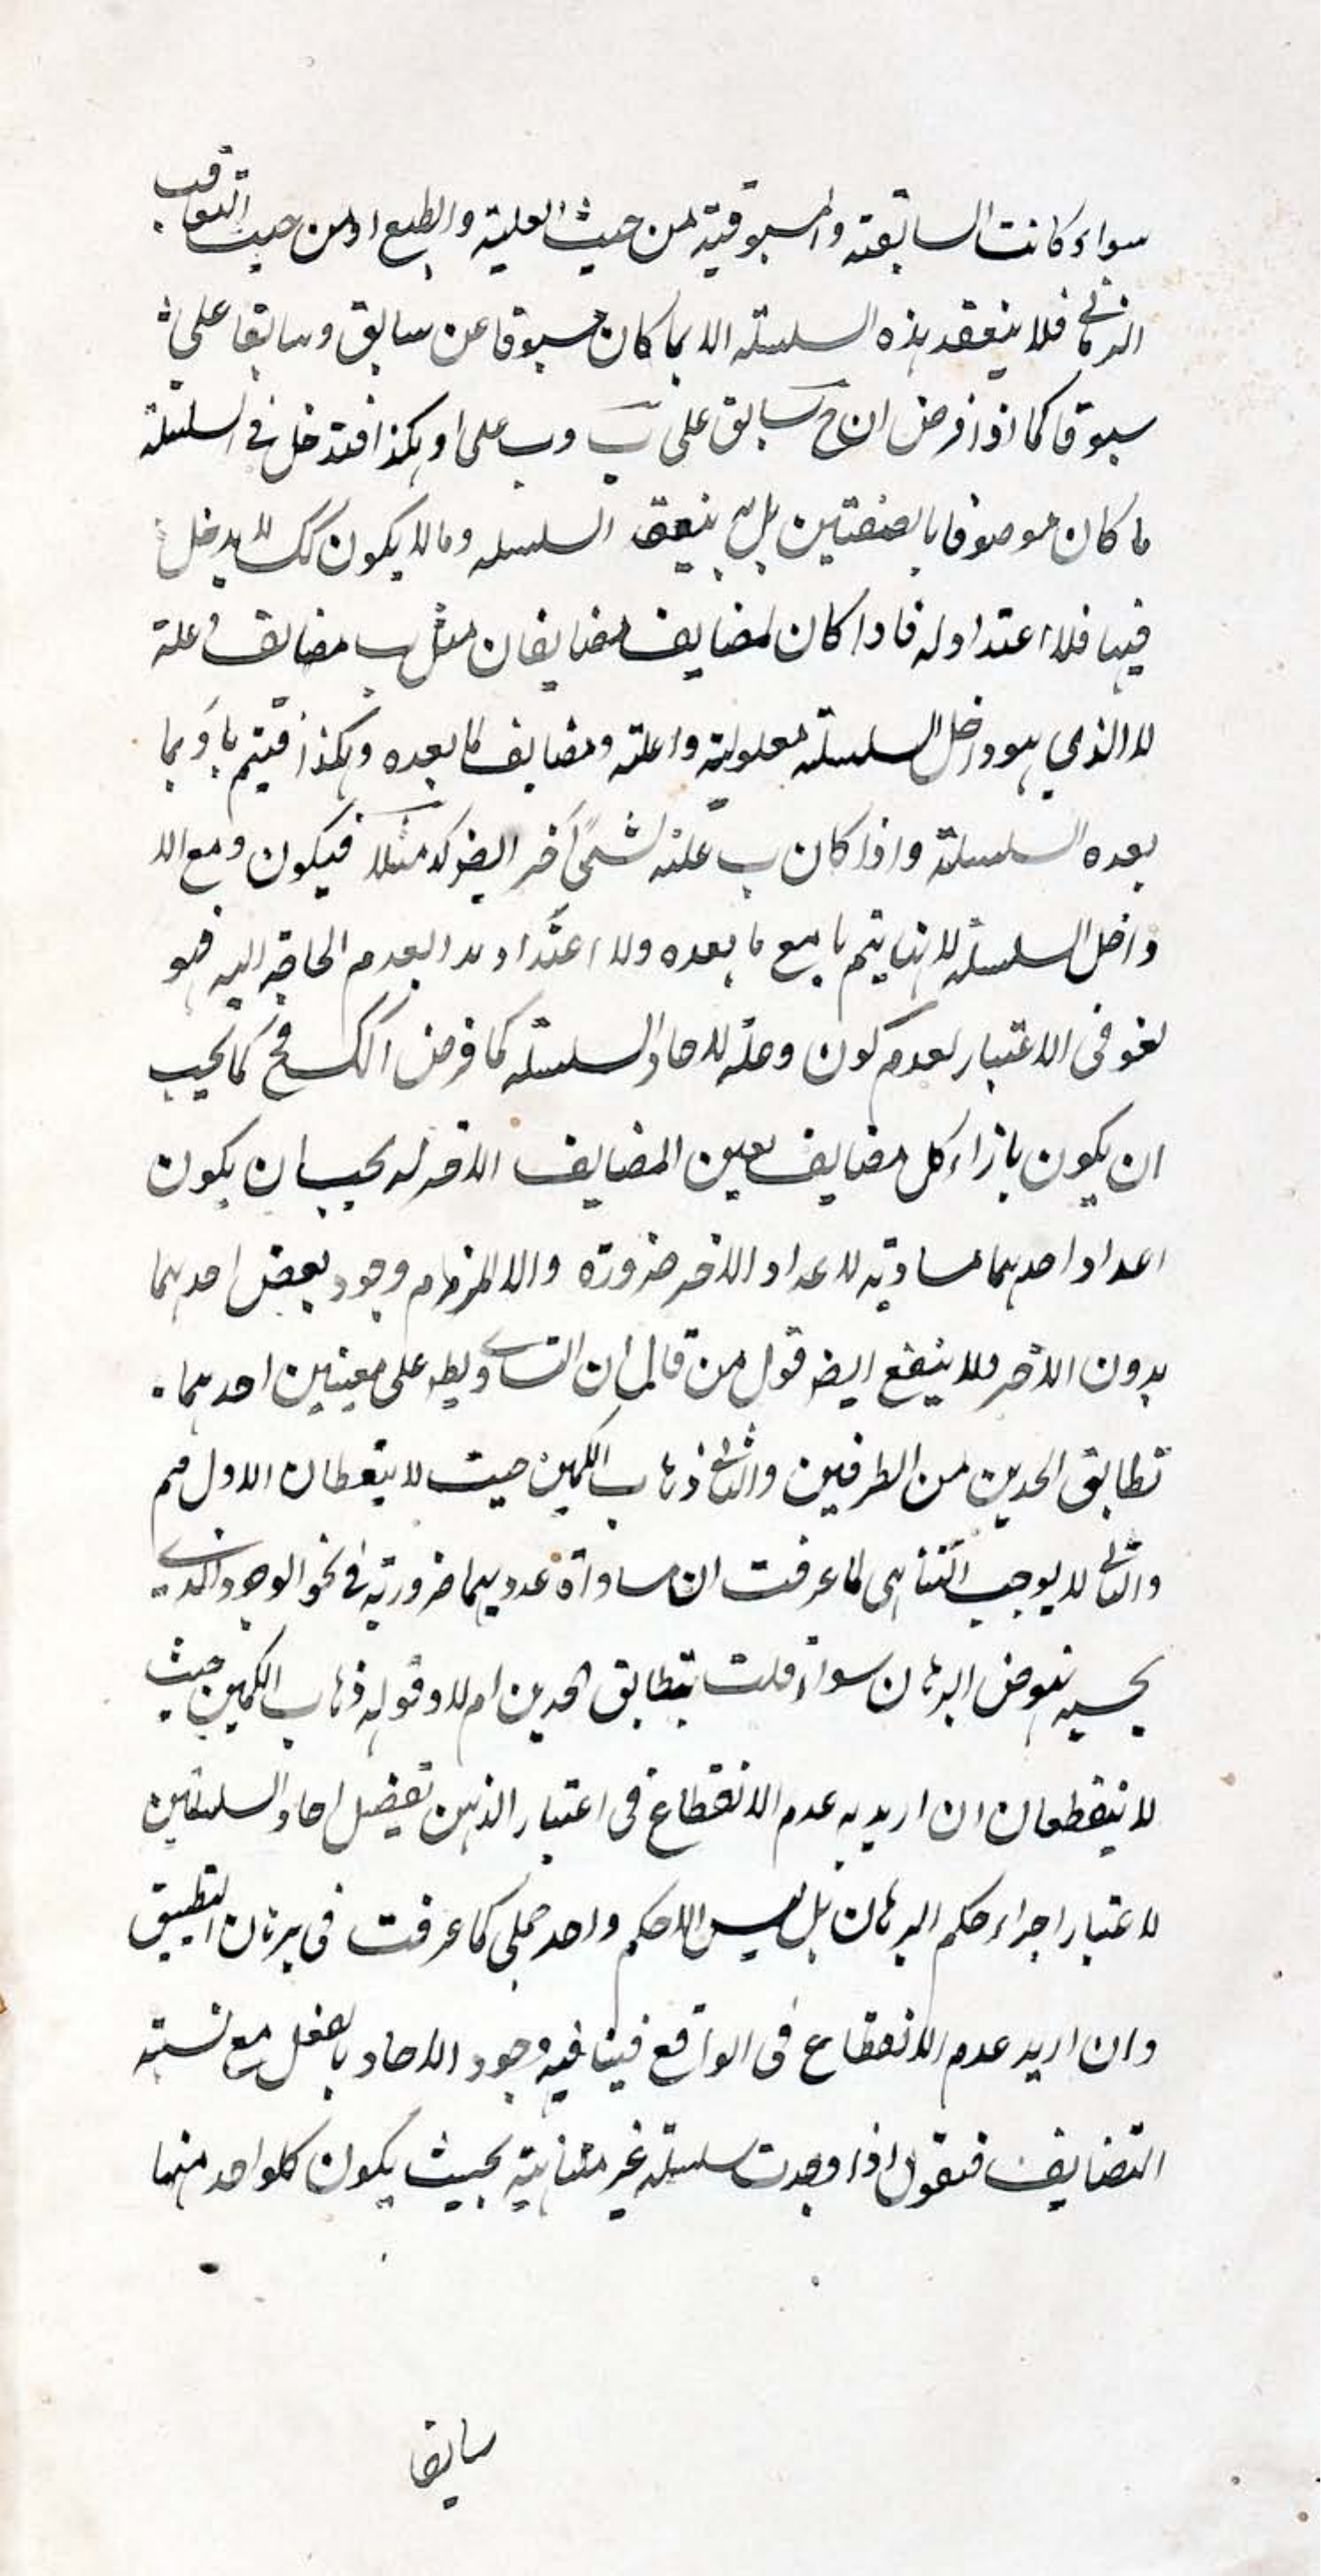 سواء كانت السابقته والمسبوقية من حيث العلية والطبع او من حيث التعاقب
الزماني فلا ينعقد هذه السلسلة الا بما كان مسبوقا عن سابق وسابقا على
سبوقا كما اذا فرض ان ج سابق على ب وب على ا وهكذا فتدخل في السلسلة
ما كان موصوفا بالصفتين بل به ينعقد السلسله وما لا يكون كك لا يدخل
فيها فلا اعتداد له فاذا كان لمضايف مضايفان مثل ب مضايف علة
لا الذي هو داخل السلسلة معلولية وا علته ومضايف لما بعده وهكذا فيتم با وبما
بعده السلسلة واذا كان ب علته لشئ آخر ايض كد مثلا فيكون مع ا لا
داخل السلسلة لانها يتم با مع ما بعده ولا اعتداد بد العدم الحاجة اليه فهو
لغو فى الاعتبار لعدم كون د علة لاحاد السلسلة كما فرض ا كك فح كما يجب
ان يكون بازاء كل مضايف بعين المضايف الاخر له يجب ان يكون
اعداد احدهما مساوية لاعداد الاخر ضرورة والا لزم وجود بعض احدهما
بدون الاخر ولا ينفع ايض قول من قال ان التساوى يطلق على معنيين احدهما
تطابق الحدين من الطرفين والثاني ذهاب الكمين حيث لا ينقطعان الاول مم
والثاني لا يوجب التناهى لما عرفت ان مساواة عدديهما ضرورية في نحو الوجود الذي
بحسبه نهوض البرهان سواء قلت بتطابق الحدين ام لا وقوله ذهاب الكمين حيث
لا ينقطعان ان اريد به عدم الانقطاع فى اعتبار الذهن تفصيل احاد السلسلتين
لاعتبار اجراء حكم البرهان بل ليس الا حكم واحد جملى كما عرفت فى برهان التطبيق
وان اريد عدم الانقطاع فى الواقع فينافيه وجود الاحاد بالفعل مع نسبته
التضايف فنقول اذا وجدت سلسلة غير متناهية بحيث يكون كلواحد منها
سابقا